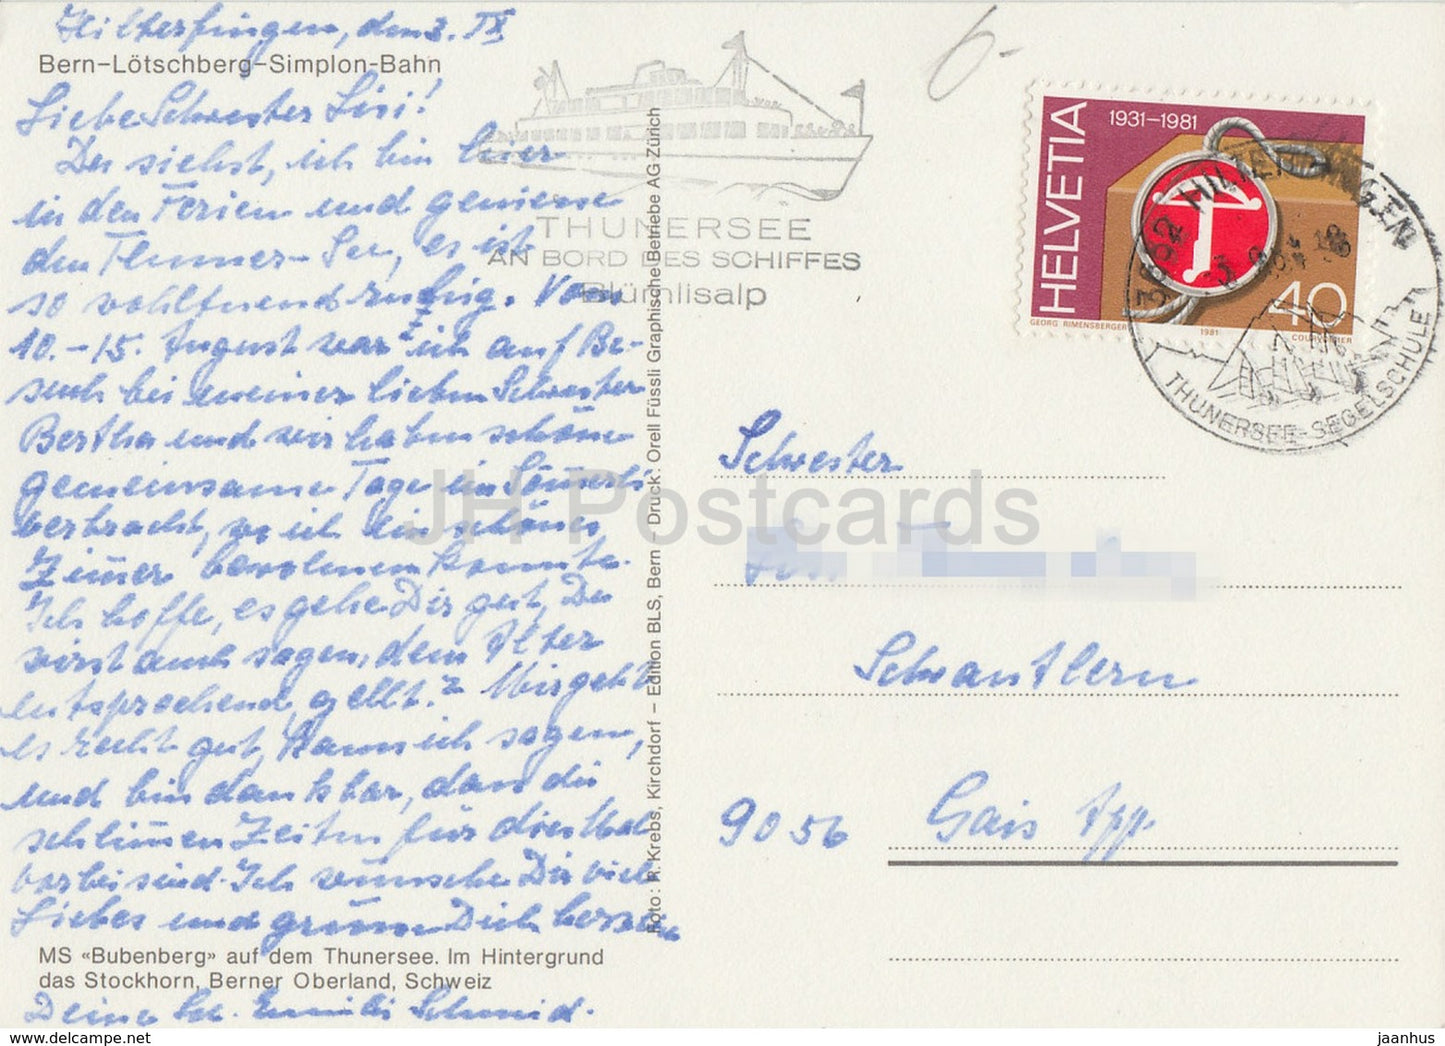 Hilterfingen, den 3. IX
Bern–Lötschberg–Simplon-Bahn
Liebe Schwester Lisi!
Du siehst, ich bin hier
in den Ferien und geniesse
den Thuner-See, es ist
so wohltuend ruhig. Vom
10.-15. August war ich auf Be-
such bei meiner lieben Schwester
Bertha und wir haben schöne
gemeinsame Tage in
verbracht, wo ich ein schönes
Zimer bewohnen konnte.
Ich hoffe, es gehe Dir gut, Du
wirst auch sagen, dem Alter
entsprechend, gellt? Mir geht
es recht gut, kann ich sagen,
und bin dankbar, dass die
schlimen Zeiten für dies Mal
vorbei sind. Ich wünsche Dir viel
Liebes und grüsse Dich herzl.
MS «Bubenberg» auf dem Thunersee. Im Hintergrund
das Stockhorn, Berner Oberland, Schweiz
Deine Schmid.
Foto: R. Krebs, Kirchdorf – Edition BLS, Bern – Druck: Orell Füssli Graphische Betriebe AG Zürich
THUNERSEE
AN BORD DES SCHIFFES
Blümlisalp
6.-
HELVETIA
1931–1981
40
GEORG RIMENSBERGER
1981
COURVOISIER
3652 HILTERFINGEN
THUNERSEE-SEGELSCHULE
Schwester
Schwantlern
9056 Gais App.
JH Postcards
jaanhus